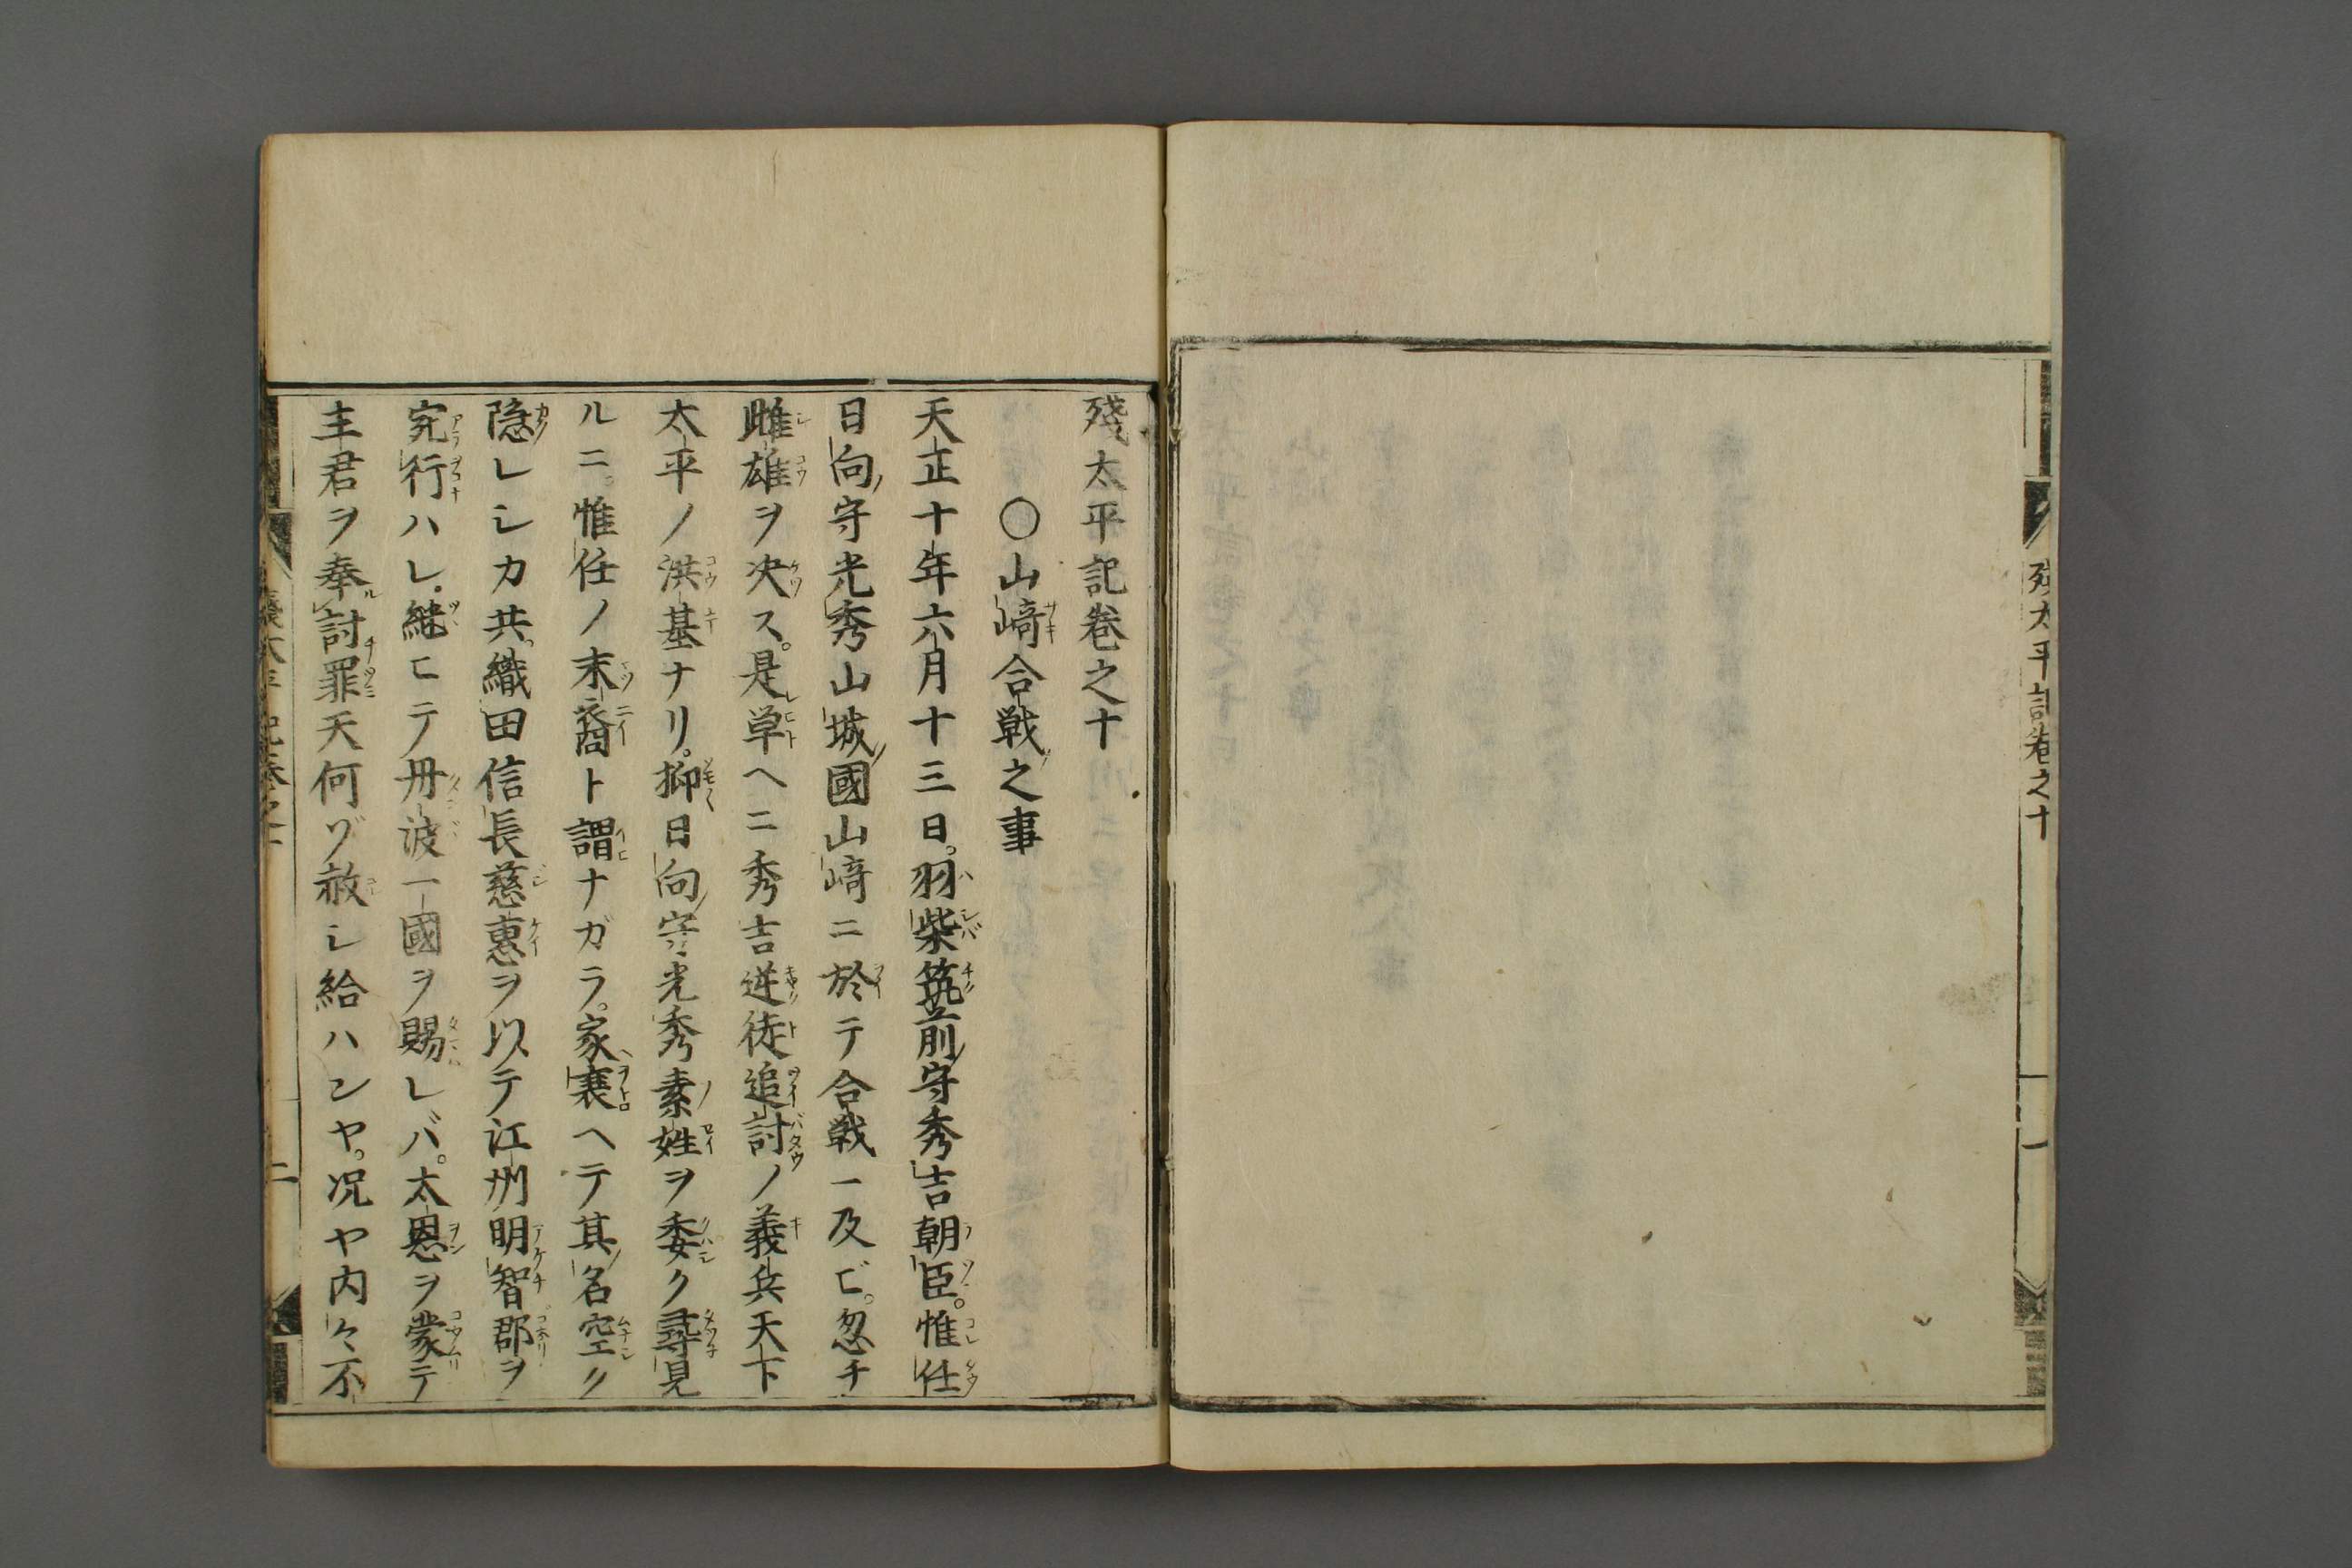 殘太平記卷之十
一
殘太平記卷之十
〇山﨑合戦之事
天正十年六月十三日。羽柴筑前守秀吉朝臣。惟任
日向守光秀山城國山﨑ニ於テ合戦一及ビ。忽チ
雌雄ヲ决ス。是単ヘニ秀吉逆徒追討ノ義兵天下
太平ノ洪基ナリ。抑日向守光秀素姓ヲ委ク尋見
ルニ。惟任ノ末裔ト謂ナガラ。家衰ヘテ其名空ク
隠レシカ共。織田信長慈惠ヲ以テ江州明智郡ヲ
宛行ハレ。継ヒテ丹波一國ヲ賜レバ。太恩ヲ蒙テ
主君ヲ奉討罪天何ゾ赦シ給ハンヤ。况ヤ内々不
二